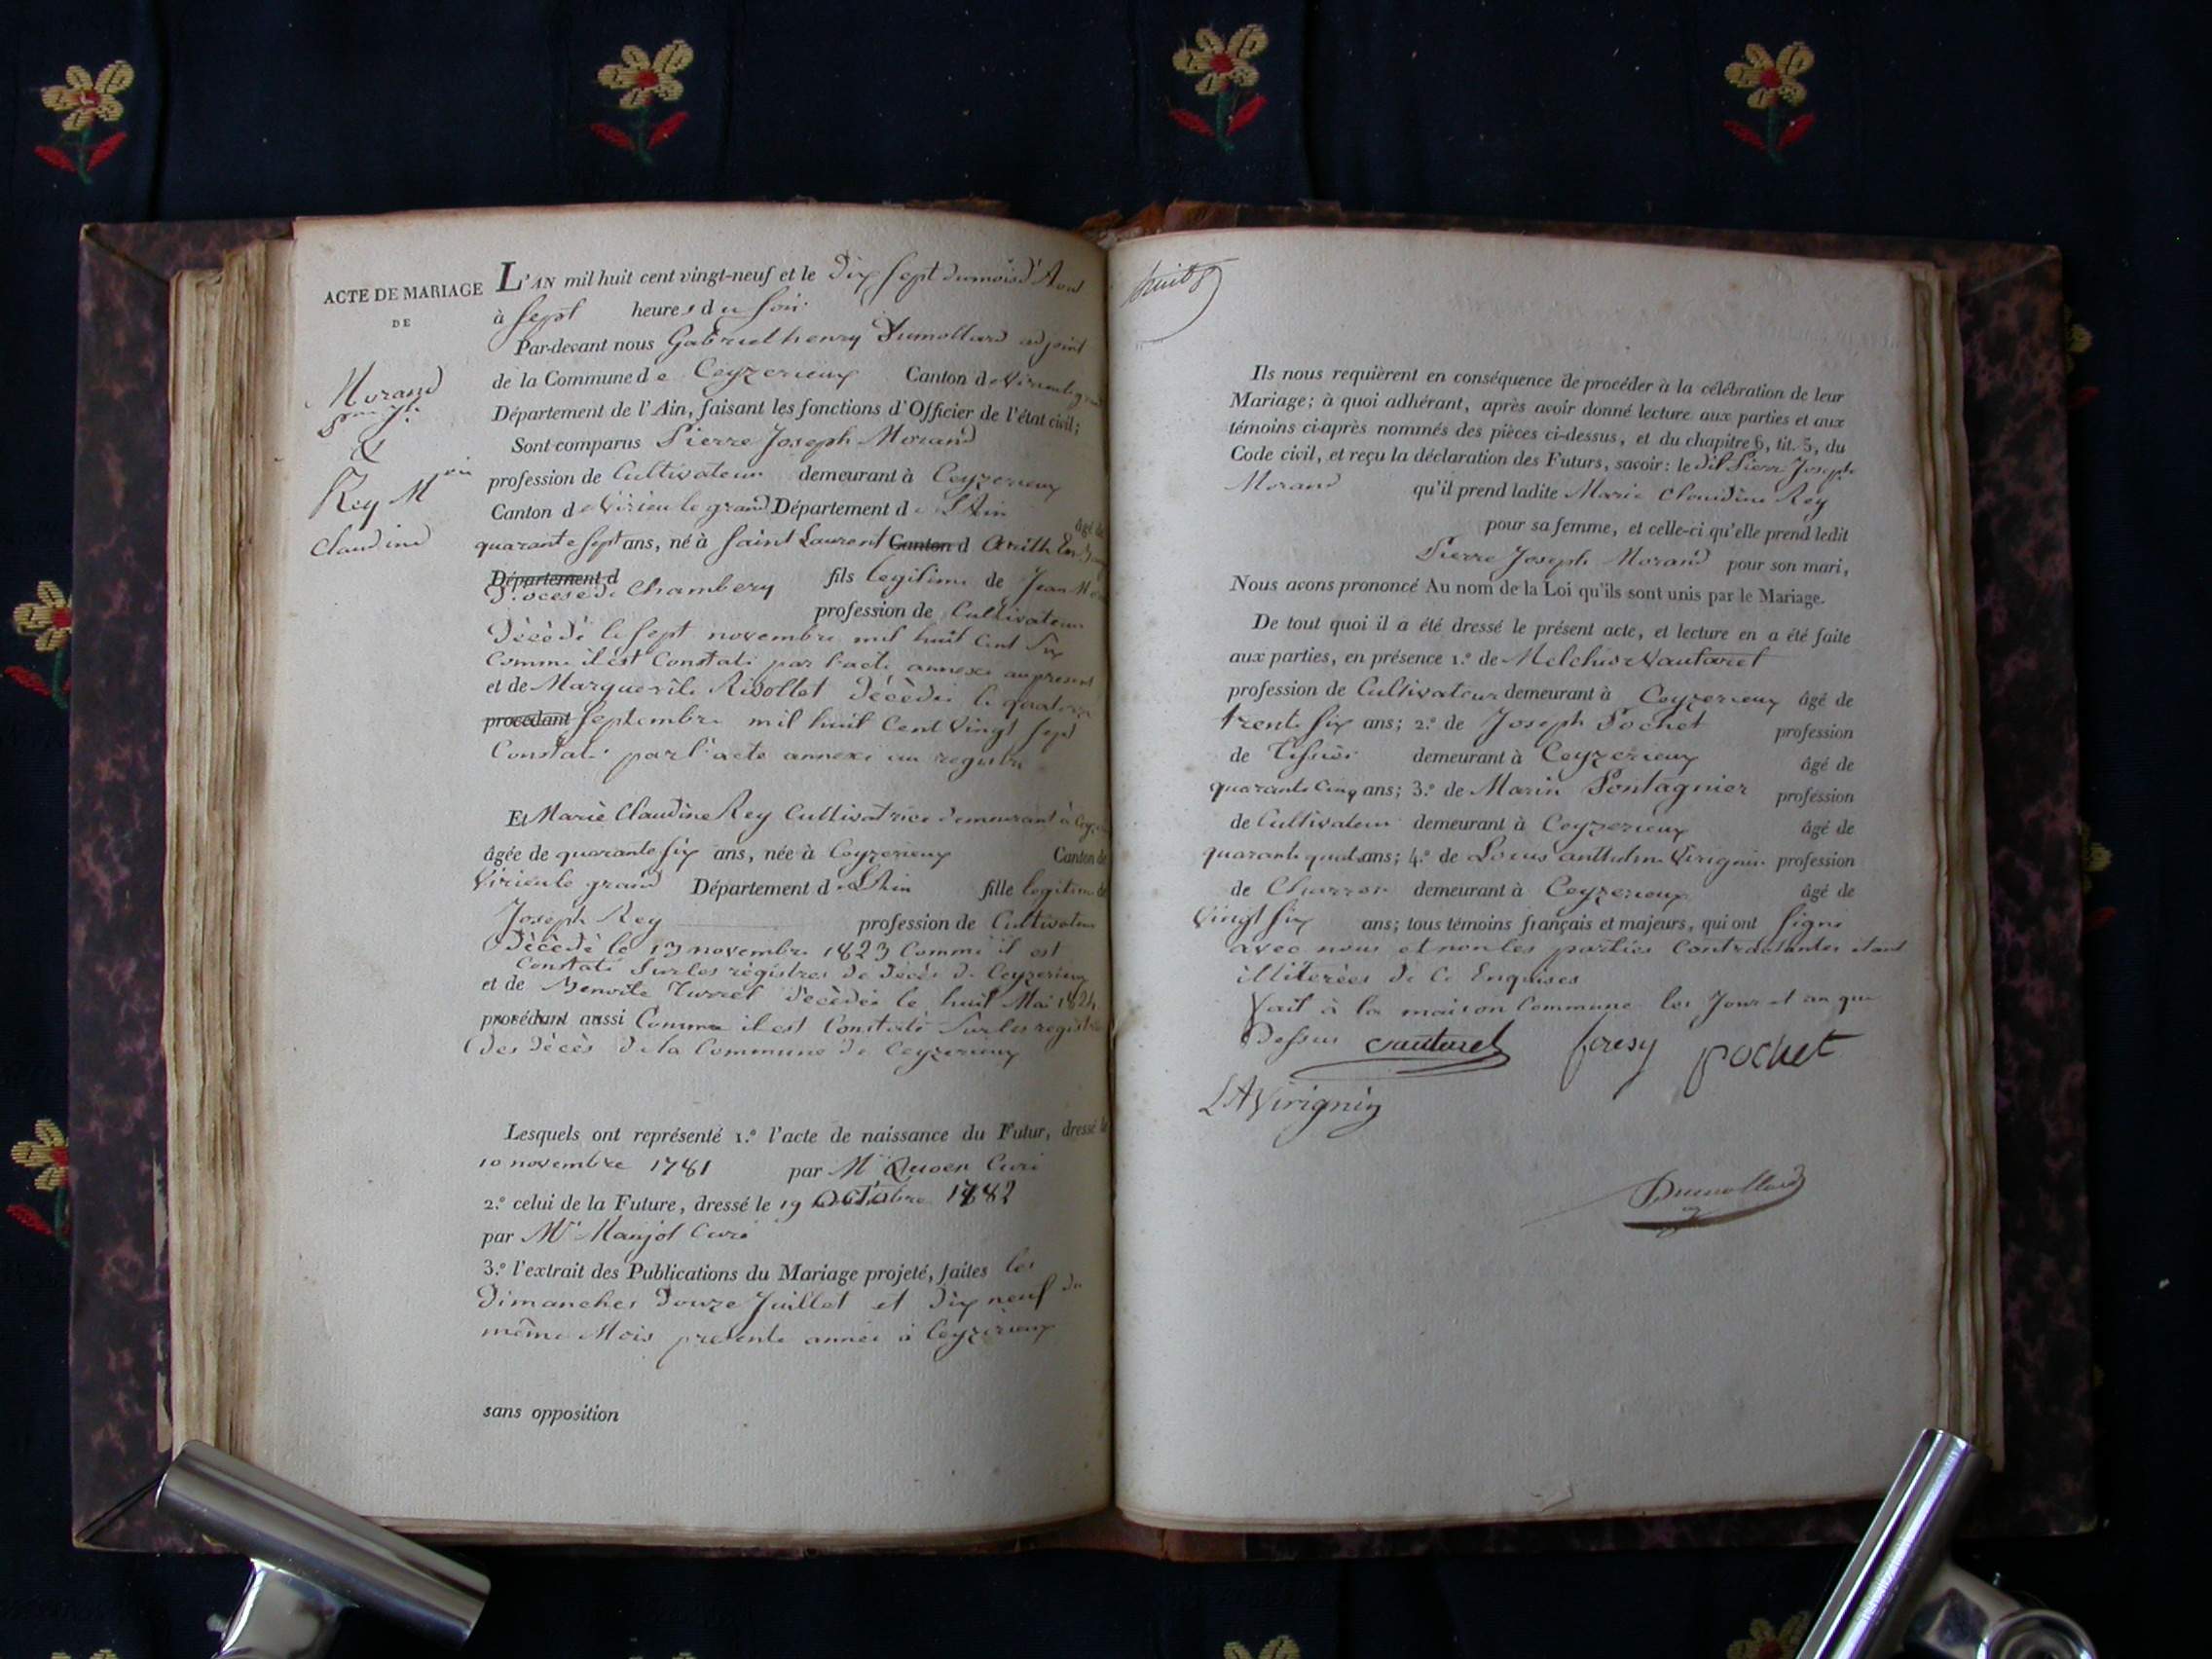 ACTE DE MARIAGE
DE
Morand
&
Rey M
Claudine
L'AN mil huit cent vingt-neuf et le Dix sept du mois d'Aout
à sept heures du soir
Par-devant nous Gabriel henry Dumollard adjoint
de la Commune de Ceyzerieux Canton de Virieu le grand
Département de l'Ain, faisant les fonctions d'Officier de l'état civil;
Sont comparus Pierre Joseph Morand
profession de Cultivateur demeurant à Ceyzerieux
Canton de Virieu le grand Département de L'Ain âgé de
quarante sept ans, né à Saint Laurent Canton d
Département d
Diocese de Chambery fils legitime de Jean
profession de Cultivateur
Décèdé le sept novembre mil huit Cent Six
Comme il est Constaté par l'acte annexé au present
et de Marguerite Ribollet Décèdée le quatorze
procédant Septembre mil huit Cent Vingt Sept
Constaté par l'acte annexé au registre
Et Marie Claudine Rey Cultivatrice demeurant à
âgée de quarante six ans, née à Ceyzerieux Canton de
Virieu le grand Département de L'Ain fille legitime de
Joseph Rey profession de Cultivateur
Décèdé le 13 novembre 1823 Comme il est
Constaté Sur les règistres de Décès de Ceyzerieux
et de Benoite Turrel Décèdée le huit Mai 1824
procédant aussi Comme il est Constaté Sur les registres
des Décès de la Commune de Ceyzerieux
Lesquels ont représenté 1.º l'acte de naissance du Futur, dressé le
10 novembre 1781 par Mr Curé
2.º celui de la Future, dressé le 19 Octobre 1782
par Mr Manjot Curé
3.º l'extrait des Publications du Mariage projeté, faites les
Dimanches Douze Juillet et Dix neuf du
même Mois presente année à Ceyzerieux
sans opposition
huit
Ils nous requièrent en conséquence de procéder à la célébration de leur
Mariage; à quoi adhérant, après avoir donné lecture aux parties et aux
témoins ci-après nommés des pièces ci-dessus, et du chapitre 6, tit. 5, du
Code civil, et reçu la déclaration des Futurs, savoir: le dit Pierre Joseph
Morand qu'il prend ladite Marie Claudine Rey
pour sa femme, et celle-ci qu'elle prend ledit
Pierre Joseph Morand pour son mari,
Nous avons prononcé Au nom de la Loi qu'ils sont unis par le Mariage.
De tout quoi il a été dressé le présent acte, et lecture en a été faite
aux parties, en présence 1.º de Melchior Vautaret
profession de Cultivateur demeurant à Ceyzerieux âgé de
trente six ans; 2.º de Joseph Pochet profession
de Tissier demeurant à Ceyzerieux âgé de
quarante Cinq ans; 3.º de Marin Pontagnier profession
de Cultivateur demeurant à Ceyzerieux âgé de
quarante quat ans; 4.º de Louis anthelme Virignin profession
de Charron demeurant à Ceyzerieux âgé de
Vingt Six ans; tous témoins français et majeurs, qui ont Signé
avec nous et non les parties Contractantes étant
illiterées de Ce Enquises
Fait à la maison Commune les Jour et an que
Dessus Vautaret pochet
LAVirignin
Dumollard